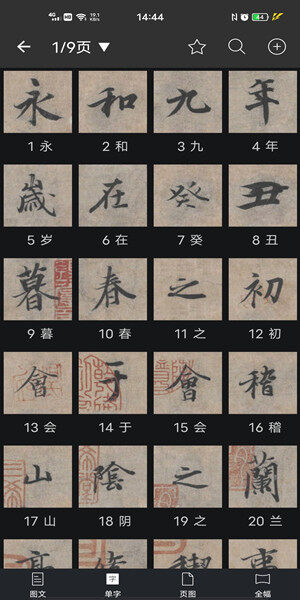 4G HD 19.1 14:44 4
1/9页 ▼
永 和 九 年
1 永 2 和 3 九 4 年
歲 在 癸 丑
5 岁 6 在 7 癸 8 丑
暮 春 之 初
9 暮 10 春 11 之 12 初
會 于 會 稽
13 会 14 于 15 会 16 稽
山 陰 之 蘭
17 山 18 阴 19 之 20 兰
字
图文 单字 页图 全幅